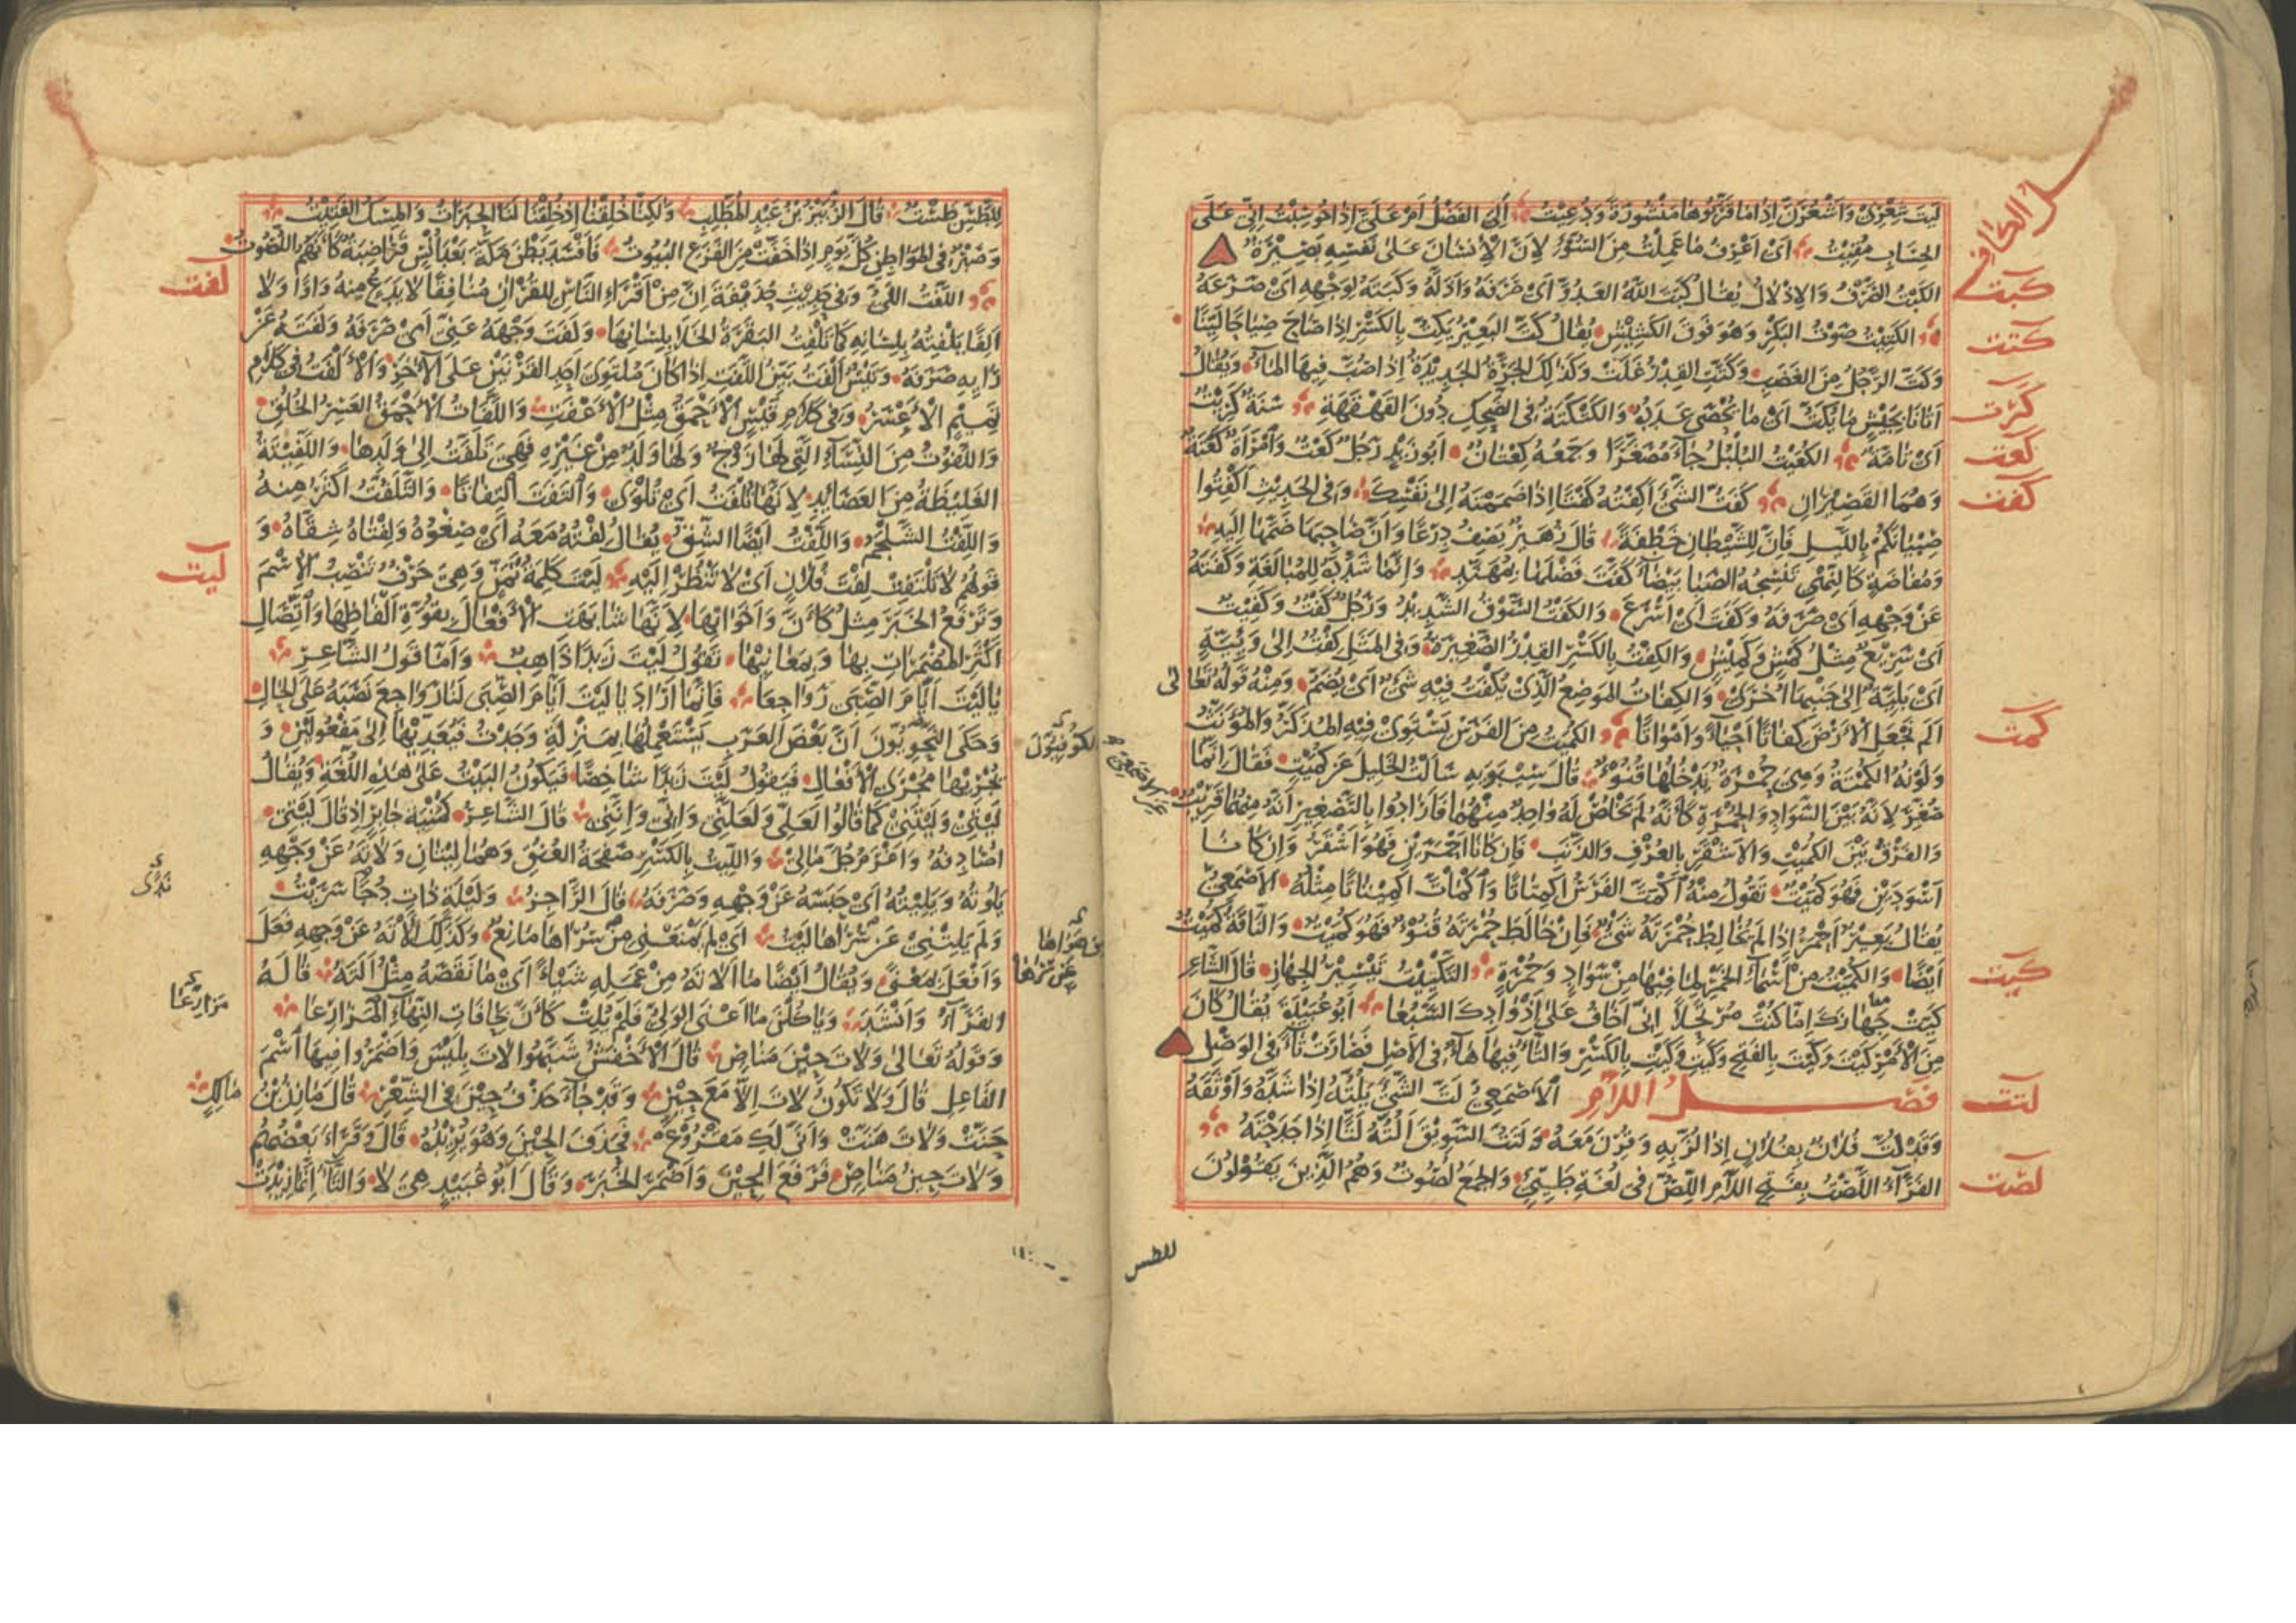 فصل الكاف
ليت شعري واشعرن اذا ما قربوها منشورة ودعيت الي الفضل ام علي اذا حوسبت اني على
الحساب مقيت اي اعرف ما عملت من السوء لان الانسان على نفسه بصيرة
كبت
الكبت الصرف والاذلال يقال كبت الله العدو اي صرفه واذله وكبته لوجهه اي صرعه
كتت
الكتيت صوت البكر وهو فوق الكشيش يقال كت البعير يكت بالكسر اذا صاح صياحا لينا
وكت الرجل من الغضب وكتت القدر غلت وكذلك الجرة الجديدة اذا صب فيها الماء ويقال
كرت
اتانا بجيش ما يكت اي ما يحصى عدده والكتكتة في الضحك دون القهقهة سنة كريت
كعت
اي تامة الكعيت البلبل جاء مصغرا وجمعه كعتان ابو زيد رجل كعت وامراة كعتة
كفت
وهما القصيران كفت الشيء اكفته كفتا اذا ضممته الى نفسك وفي الحديث اكفتوا
صبيانكم بالليل فان للشيطان خطفة قال زهير يصف درعا وان صاحبها ضمها اليه
ومفاضة كالنهي تنسجه الصبا بيضاء كفت فضلها بمهند وانما شدده للمبالغة وكفته
عن وجهه اي صرفه وكفت اي اسرع والكفت السوق الشديد ورجل كفت وكفيت
اي سريع مثل كمش وكميش والكفت بالكسر القدر الصغيرة وفي المثل كفت الى وئية
اي بلية الى جنبها اخرى والكفات الموضع الذي يكفت فيه شيء اي يضم ومنه قوله تعالى
كمت
الم نجعل الارض كفاتا احياء وامواتا الكميت من الفرس يستوي فيه المذكر والمؤنث
ولونه الكمتة وهي حمرة يدخلها قنوء قال سيبويه سالت الخليل عن كميت فقال انما
صغر لانه بين السواد والحمرة كانه لم يخلص له واحد منهما فارادوا بالتصغير انه منهما قريب
والفرق بين الكميت والاشقر بالعرف والذنب فان كانا احمرين فهو اشقر وان كانا
اسودين فهو كميت تقول منه اكمت الفرس اكمتاتا واكمات اكميتاتا مثله الاصمعي
يقال بعير احمر اذا لم يخالط حمرته شيء فان خالط حمرته قنوء فهو كميت والناقة كميت
كيت
ايضا والكميت من اسماء الخمر لما فيها من سواد وحمرة التكييت تيسير الجهاز قال الشاعر
كيت جهازك اما كنت مرتحلا اني اخاف على اذوادك السبعا ابو عبيدة يقال كان
من الامر كيت وكيت بالفتح وكيت وكيت بالكسر والتاء فيها هاء في الاصل فصارت تاء في الوصل
لتت
فصل اللام الاصمعي لت الشيء يلته اذا شده واوثقه
وقد لت فلان بفلان اذا لز به وقرن معه ولتت السويق الته لتا اذا جدحته
لصت
الفراء اللصت بفتح اللام اللص في لغة طيئ والجمع لصوت وهم الذين يقولون
للطس
للطس طست قال الزبير بن عبد المطلب ولكنا خلقنا اذ خلقنا لنا الحبرات والمسك الفتيت
وصبر في المواطن كل يوم اذا خفت من الفزع البيوت فافسد بطن مكة بعد انس قراضبة كانهم اللصوت
لفت
اللفت اللي وفي حديث حذيفة ان من اقرا الناس للقران منافقا لا يدع منه واوا ولا
الفا يلفته بلسانه كما تلفت البقرة الخلا بلسانها ولفت وجهه عني اي صرفه ولفته عن
رايه صرفه وتيس الفت بين اللفت اذا كان ملتوي احد القرنين على الاخر والالفت في كلام
تميم الاعسر وفي كلام قيس الاحمق مثل الاعفت واللفات الاحمق العسر الخلق
واللفوت من النساء التي لها زوج ولها ولد من غيره فهي تلفت الى ولدها واللفيتة
الغليظة من العصائد لانها تلفت اي تلوى والتفت التفاتا والتلفت اكثر منه
واللفت الشلجم واللفت ايضا الشق يقال لفته معه اي صغوه ولفتاه شقاه و
ليت
قولهم لا تلتفت لفت فلان اي لا تنظر اليه ليت كلمة تمن وهي حرف تنصب الاسم
وترفع الخبر مثل كان واخواتها لانها شابهت الافعال بقوة الفاظها واتصال
اكثر المضمرات بها وبمعانيها تقول ليت زيدا ذاهب واما قول الشاعر
يا ليت ايام الصبى رواجعا فانما اراد يا ليت ايام الصبى لنا رواجع نصبه على الحال
وحكى النحويون ان بعض العرب يستعملها بمنزلة وجدت فيعديها الى مفعولين و
الكوفيون
يجريها مجرى الافعال فيقول ليت زيدا شاخصا فيكون البيت على هذه اللغة ويقال
ليتي وليتني كما قالوا لعلي ولعلني واني وانني قال الشاعر كمنية جابر اذ قال ليتي
اصادفه واغرم جل مالي والليت بالكسر صفحة العنق وهما ليتان ولاته عن وجهه
يلوته ويليته اي حبسه عن وجهه وصرفه قال الراجز وليلة ذات دجا سريت
ندى
ولم يلتني عن سراها ليت اي لم يمنعني من سراها مانع وكذلك الاته عن وجهه فعل
عن سراها
وافعل بمعنى ويقال ايضا ما الاته من عمله شيئا اي ما نقصه مثل الته قاله
الفراء وانشد وياكلن ما اعنى الولي فلم يلت كان بحافات النهاء المزارعا
مزارعا
وقوله تعالى ولات حين مناص قال الاخفش شبهوا لات بليس واضمروا فيها اسم
الفاعل قال ولا تكون لات الا مع حين وقد جاء حذف حين في الشعر قال مازن بن مالك
حنت ولات هنت وانى لك مقروع فحذف الحين وهو يريده قال وقراء بعضهم
ولات حين مناص فرفع الحين واضمر الخبر وقال ابو عبيد هي لا والتاء انما زيدت